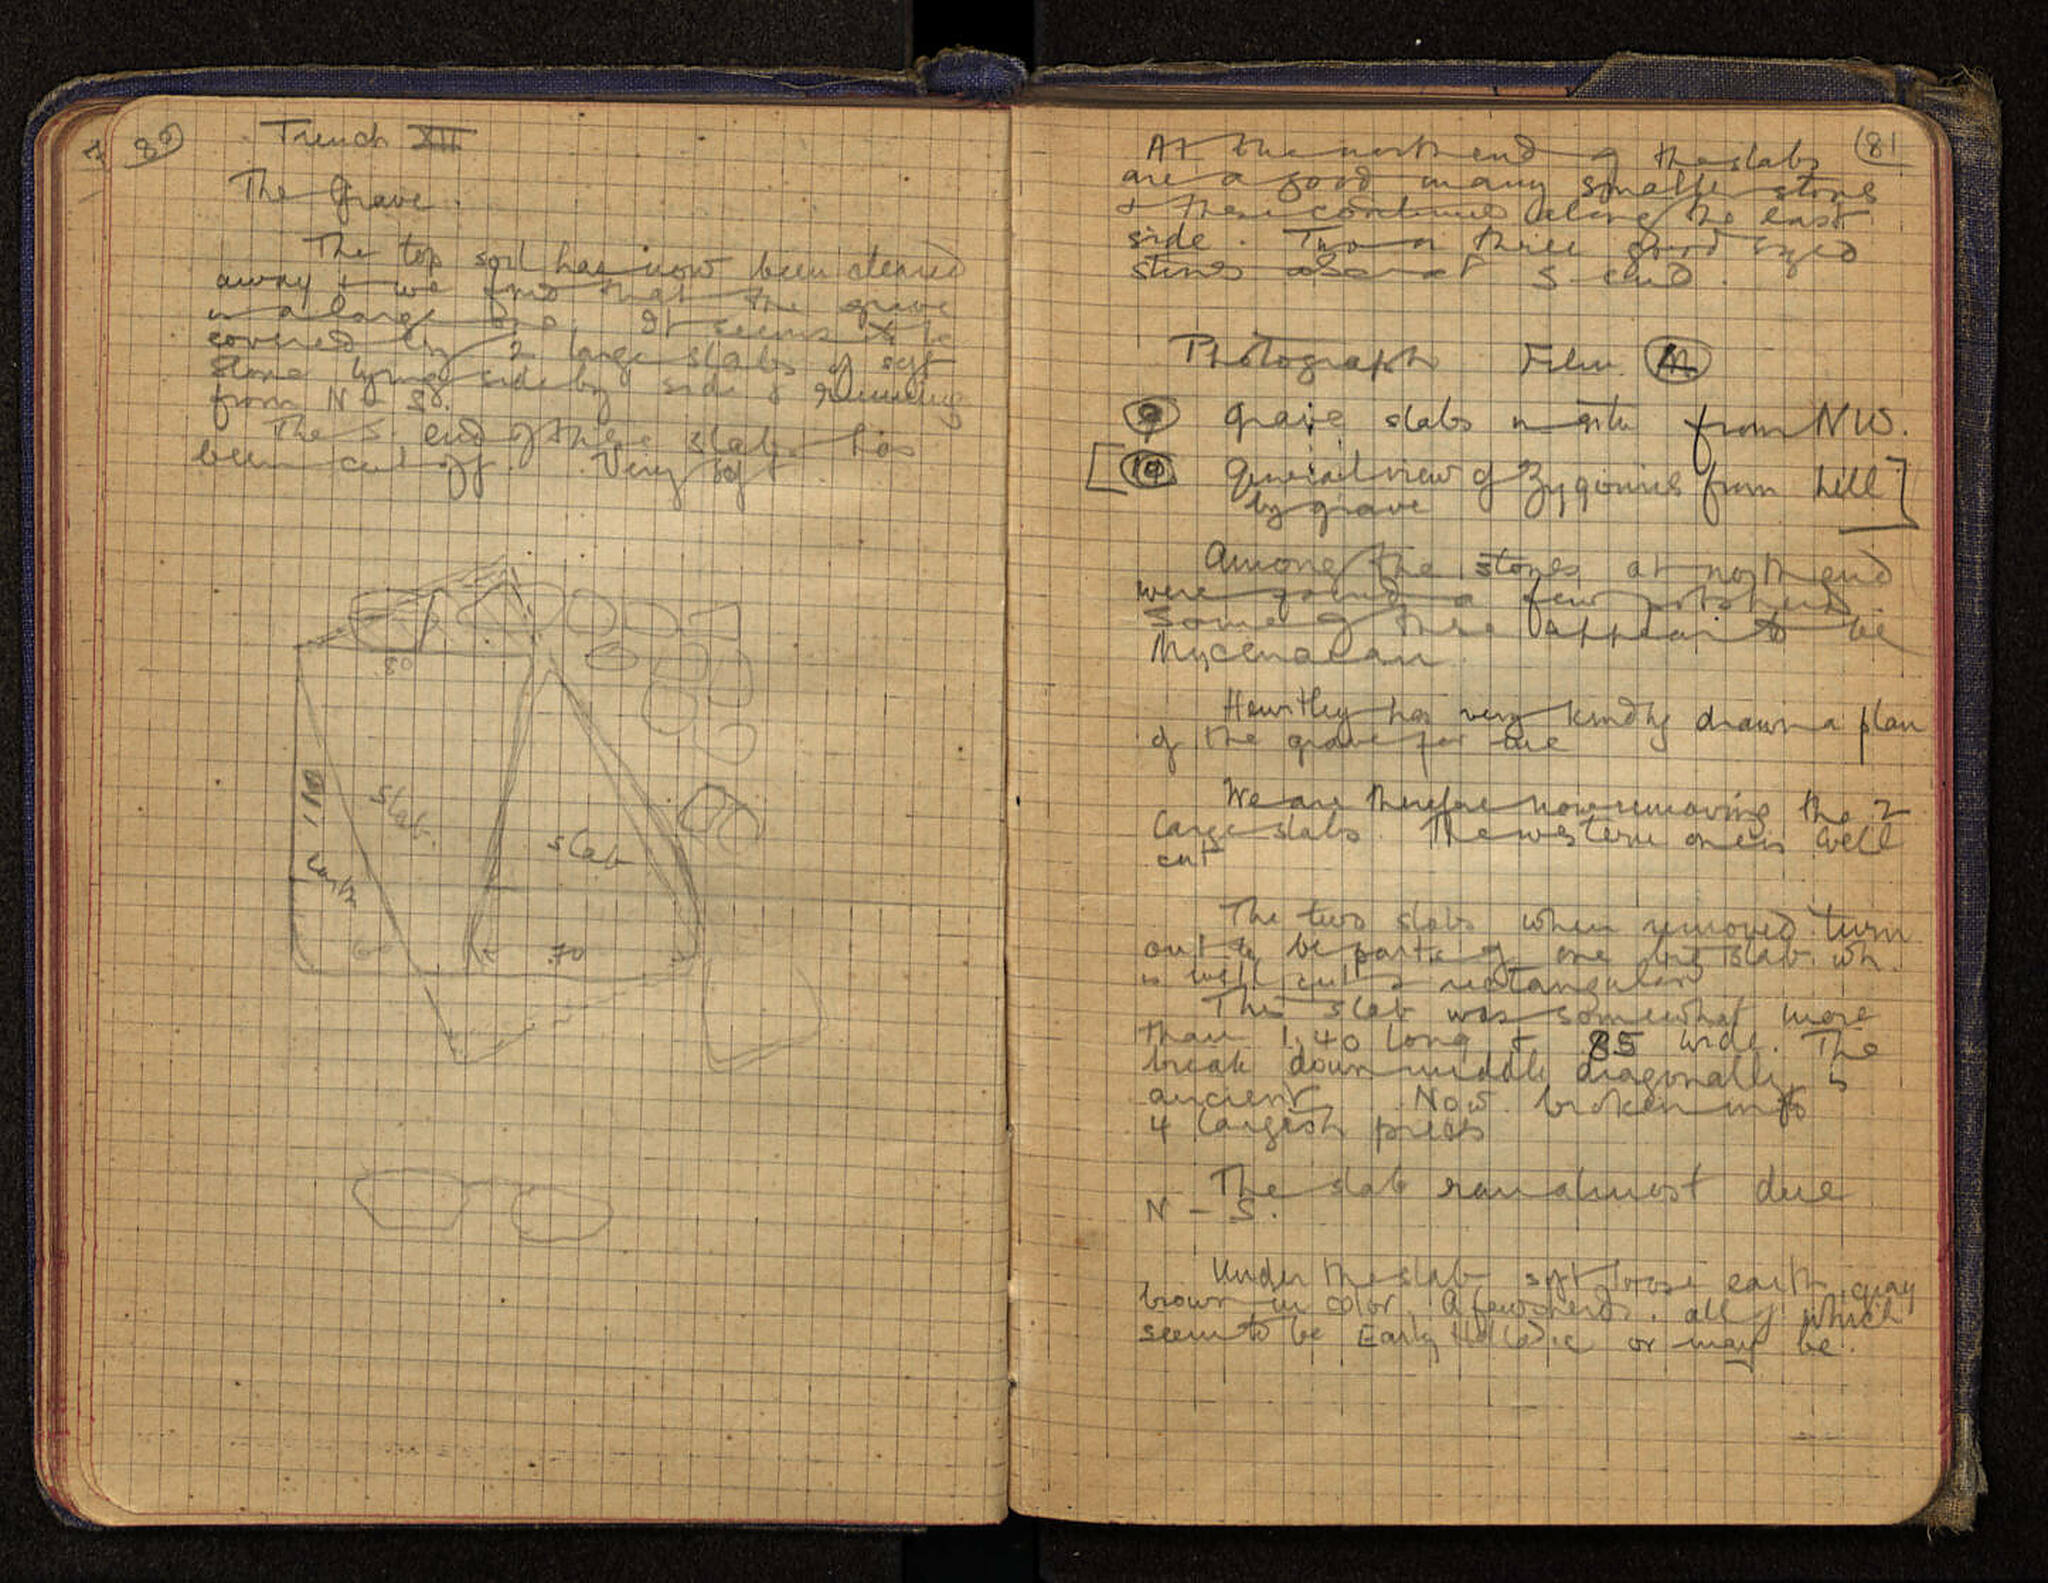 80
Trench XII
The Grave.
The top soil has now been cleared
away & we find that the grave
is a large one. It seems to be
covered by 2 large slabs of soft
stone lying side by side & running
from N – S.
The S. end of these slabs has
been cut off. Very soft
80
1.10
Slab.
slab
earth
60
70
81
At the north end of the slabs
are a good many smaller stones
& these continue along the east
side. Two or three good sized
stones also at S end.
Photograph Film
9 Grave slabs in situ from NW.
[10 General view of Zygouries from hill
by grave]
Among the stones at north end
were found a few potsherds.
Some of these appear to be
Mycenaean.
Heurtley has very kindly drawn a plan
of the grave for me
We are therefore now removing the 2
large slabs. The western one is well
cut
The two slabs when removed turn
out to be parts of one slab wh.
is well cut & rectangular
This slab was somewhat more
than 1.40 long & 85 wide. The
break down middle diagonally is
ancient. Now broken into
4 largish pieces
The slab ran almost due
N – S.
Under the slab soft loose earth, gray
brown in color. A few sherds. all of which
seem to be Early Helladic or may be.